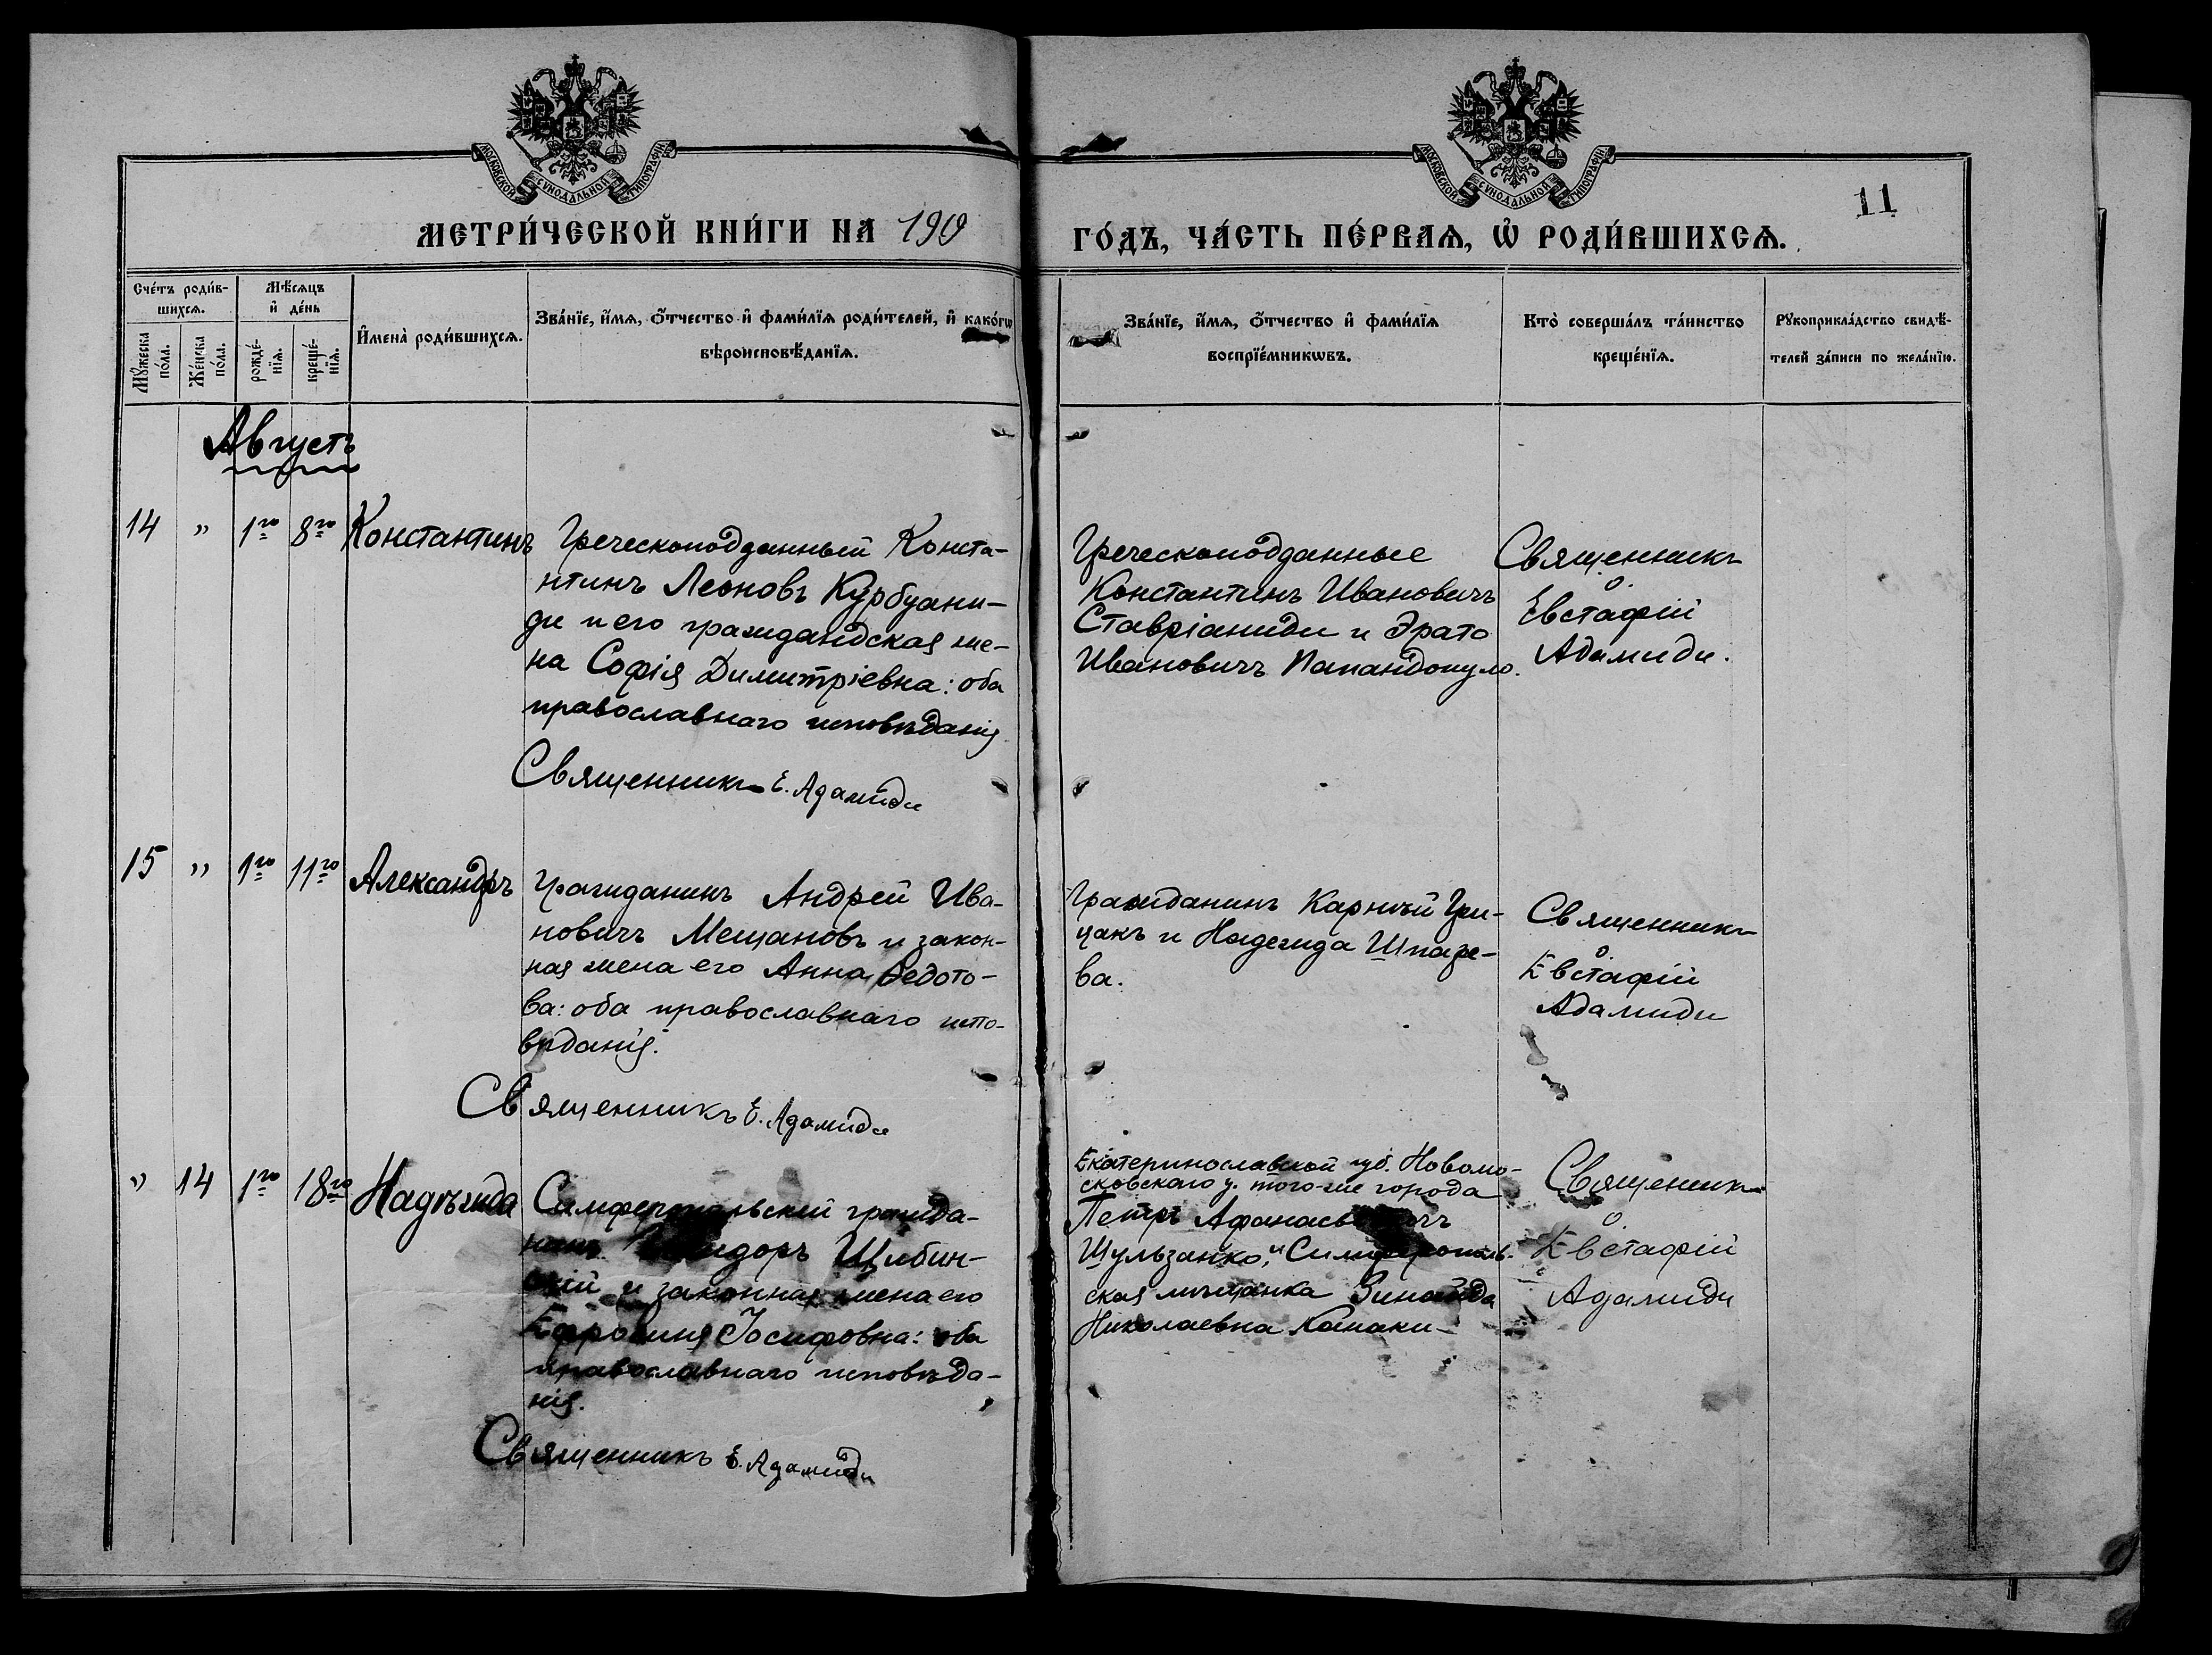 МОСКОВСКОЙ СУНОДАЛЬНОЙ ТИПОГРАФІИ
МОСКОВСКОЙ СУНОДАЛЬНОЙ ТИПОГРАФІИ
11
МЕТРИ́ЧЕСКОЙ КНИ́ГИ НА 1919
ГО́ДЪ, ЧА́СТЬ ПЕ́РВАѦ, Ѡ҆ РОДИ́ВШИХСѦ.
Сче́тъ роди́в-
шихсѧ.
Мꙋ́жеска по́ла.
Же́нска по́ла.
Мѣ́сѧцъ
и҆ де́нь
рожде́-
нїѧ.
креще́-
нїѧ.
И҆мена̀ роди́вшихсѧ.
Зва́нїе, и҆́мѧ, ѻ҆́тчество и҆ фами́лїѧ роди́телей, и҆ како́гѡ
вѣроисповѣ́данїѧ.
Зва́нїе, и҆́мѧ, ѻ҆́тчество и҆ фами́лїѧ
воспрїе́мникѡвъ.
Кто̀ соверша́лъ та́инство
креще́нїѧ.
Рꙋкоприкла́дство свидѣ́-
телей за́писи по жела́нїю.
Августъ
14 " 1го 8го Константинъ
Греческоподданный Конста-
нтинъ Леоновъ Курбуани-
ди и его граждандская же-
на Софія Димитріевна: оба
православнаго исповѣданія
Священникъ Е. Адамиди
Греческоподданные
Константинъ Ивановичъ
Ставріаниди и Эрато
Ивановичъ Папандопуло.
Священникъ
о
Евстафій
Адамиди.
15 " 1го 11го Александръ
Гражданинъ Андрей Ива-
новичъ Мещановъ и закон-
ная жена его Анна Федото-
ва: оба православнаго испо-
вѣданія.
Священникъ Е. Адамиди
Гражданинъ Карпъй Гри-
цакъ и Надежда Шпаре-
ва.
Священникъ
о
Евстафій
Адамиди
" 14 1го 18го Надѣжда
Симферопольскій гражда-
нинъ Щибин-
скій и законная жена его
Ефросинія Іосифовна: оба
православнаго исповѣда-
нія.
Священникъ Е. Адамиди
Екатеринославской губ. Новомо-
сковскаго у. того-же города
Петръ Афанасьевичъ
Шульзанко, и Симферополь-
ская мѣщанка Зинаида
Николаевна Канаки-
Священникъ
о
Евстафій
Адамиди